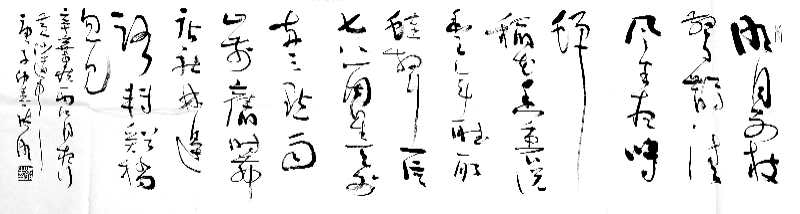 明月别枝
驚鵲清
風半夜鳴
蟬
稻花香裏說
豐年聽取
蛙聲一片
七八個星天外
兩三點雨
山前舊時茅
店社林邊
路轉谿橋
忽見
辛棄疾西江月夜行
黄沙道中
庚子仲夏